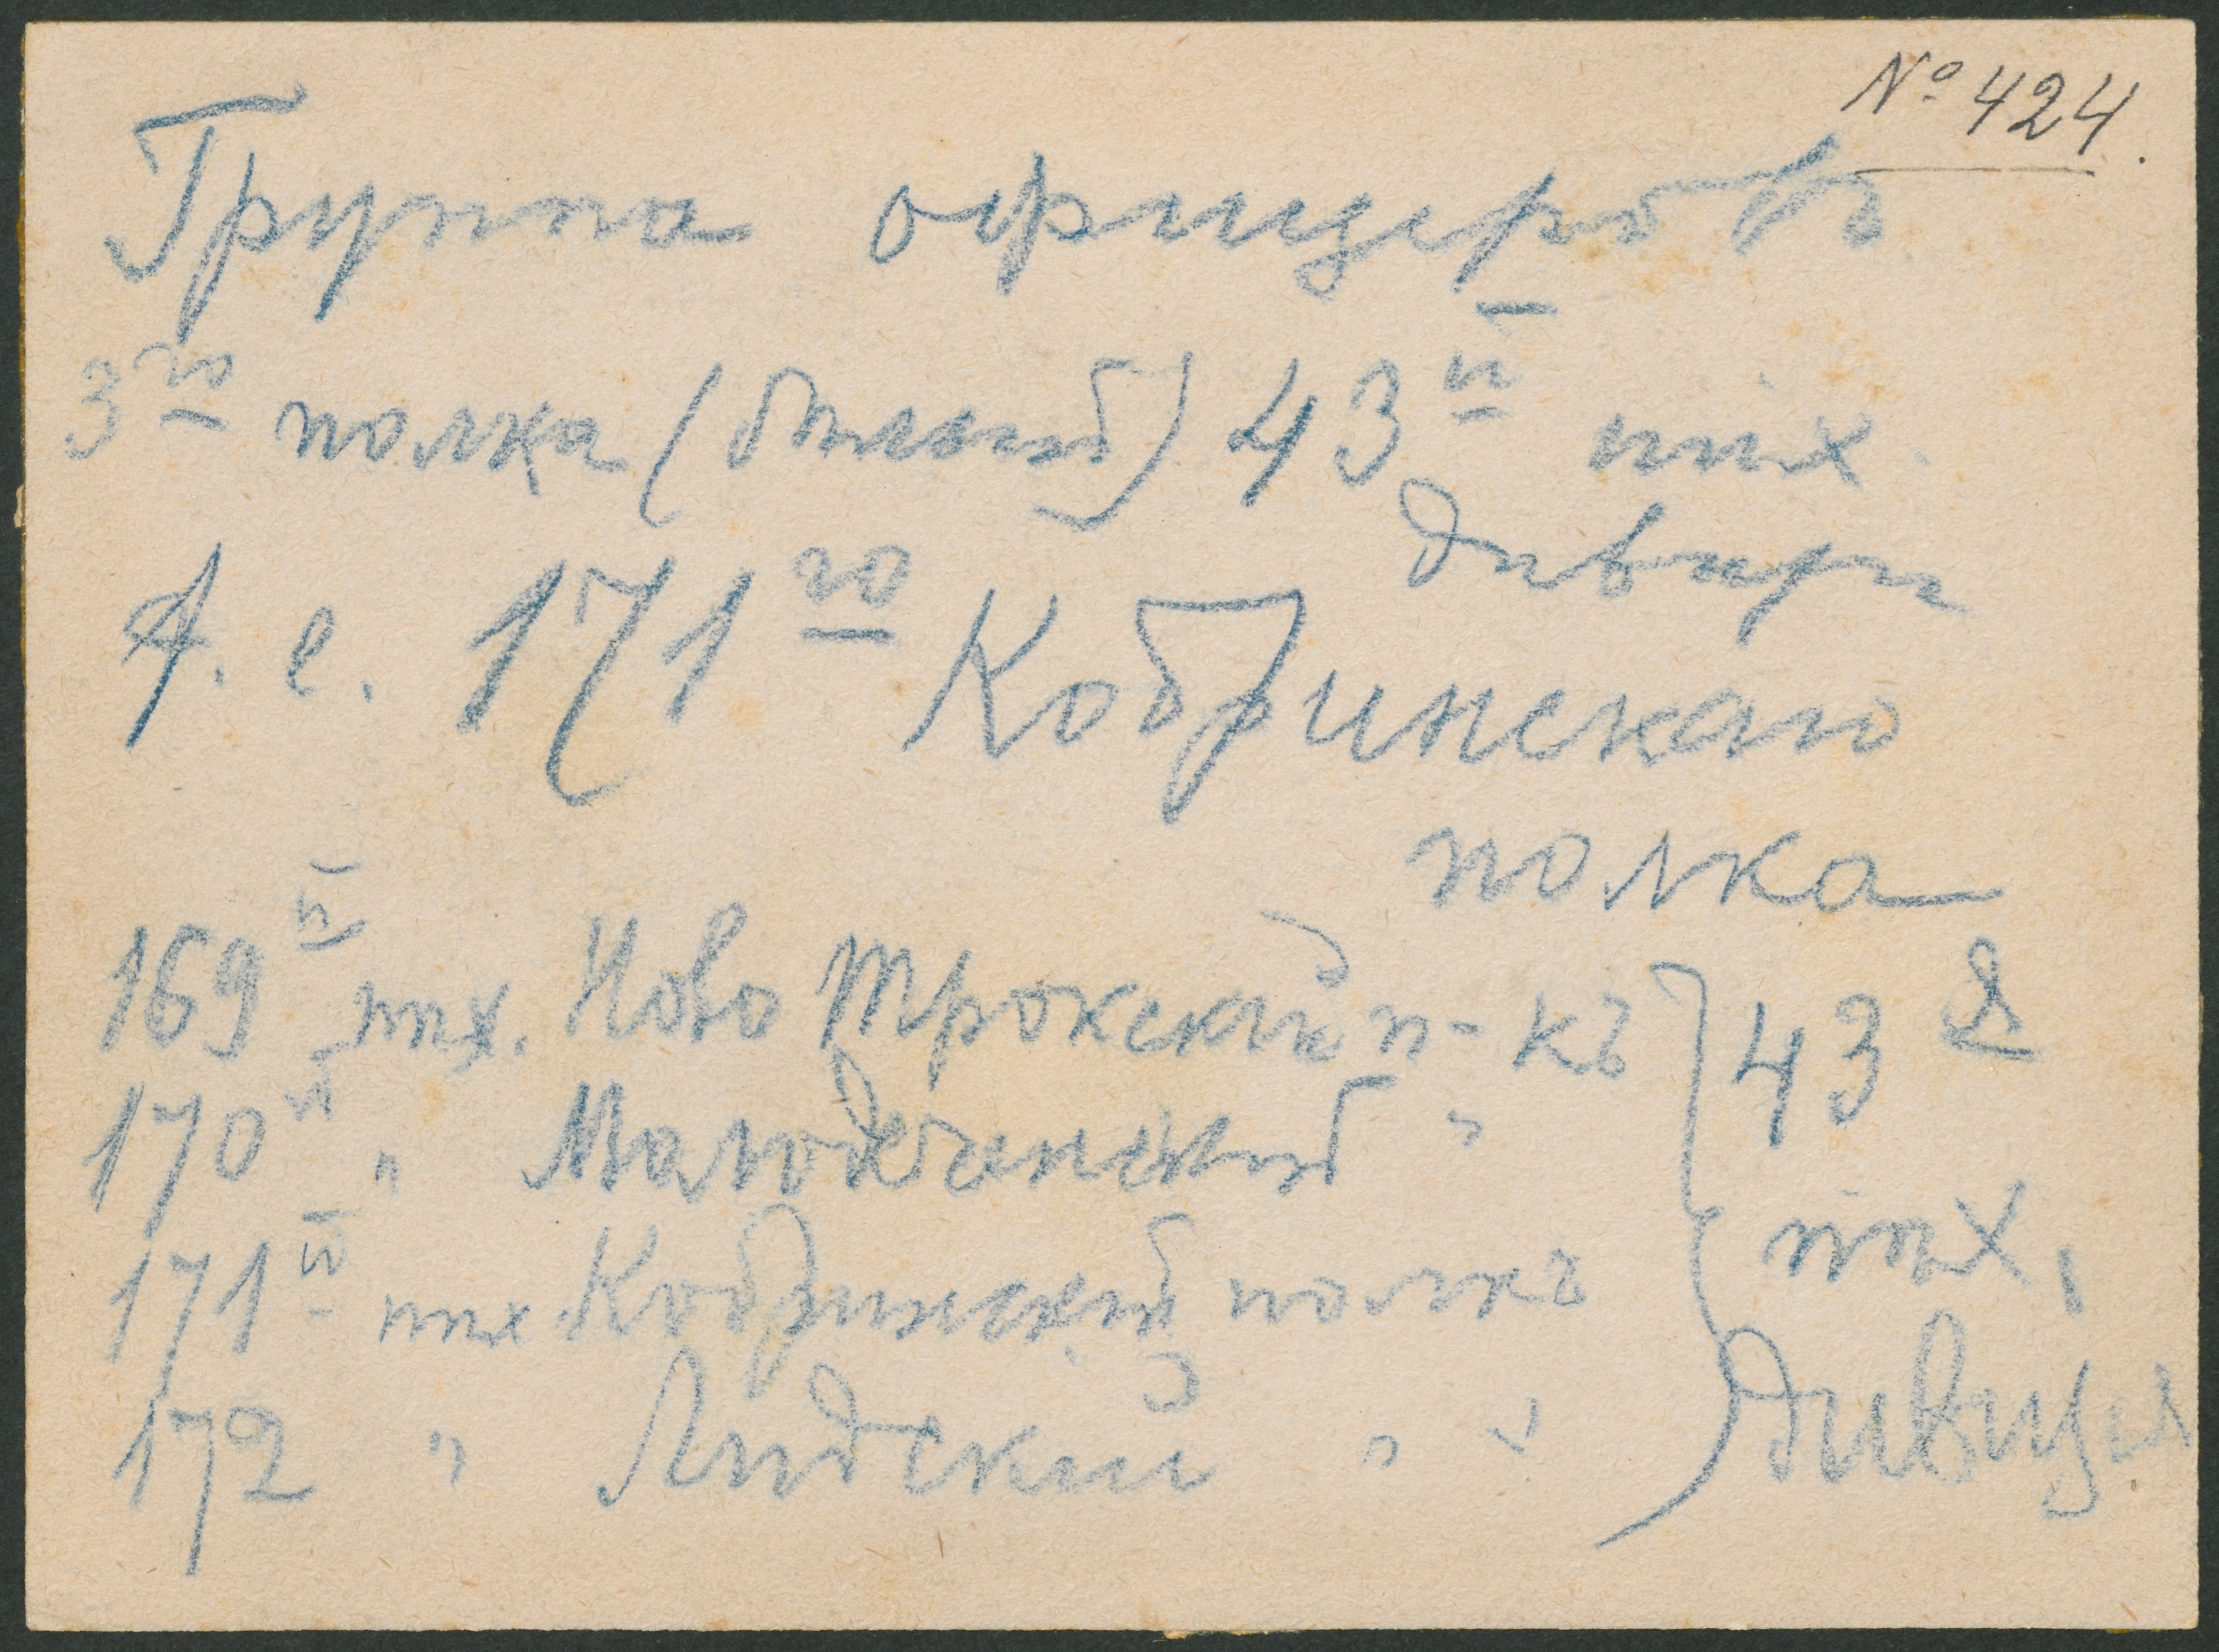 № 424.
Группа офицеровъ
3го полка (белый) 43й пѣх.
дивиз
т. е. 171го Кобринскаго
полка
169й пѣх. Ново Трокскай п-къ
170й " Молодеченский "
171й пѣх Кобринский полкъ
172 " Лидский " "
43й
пѣх.
дивизи